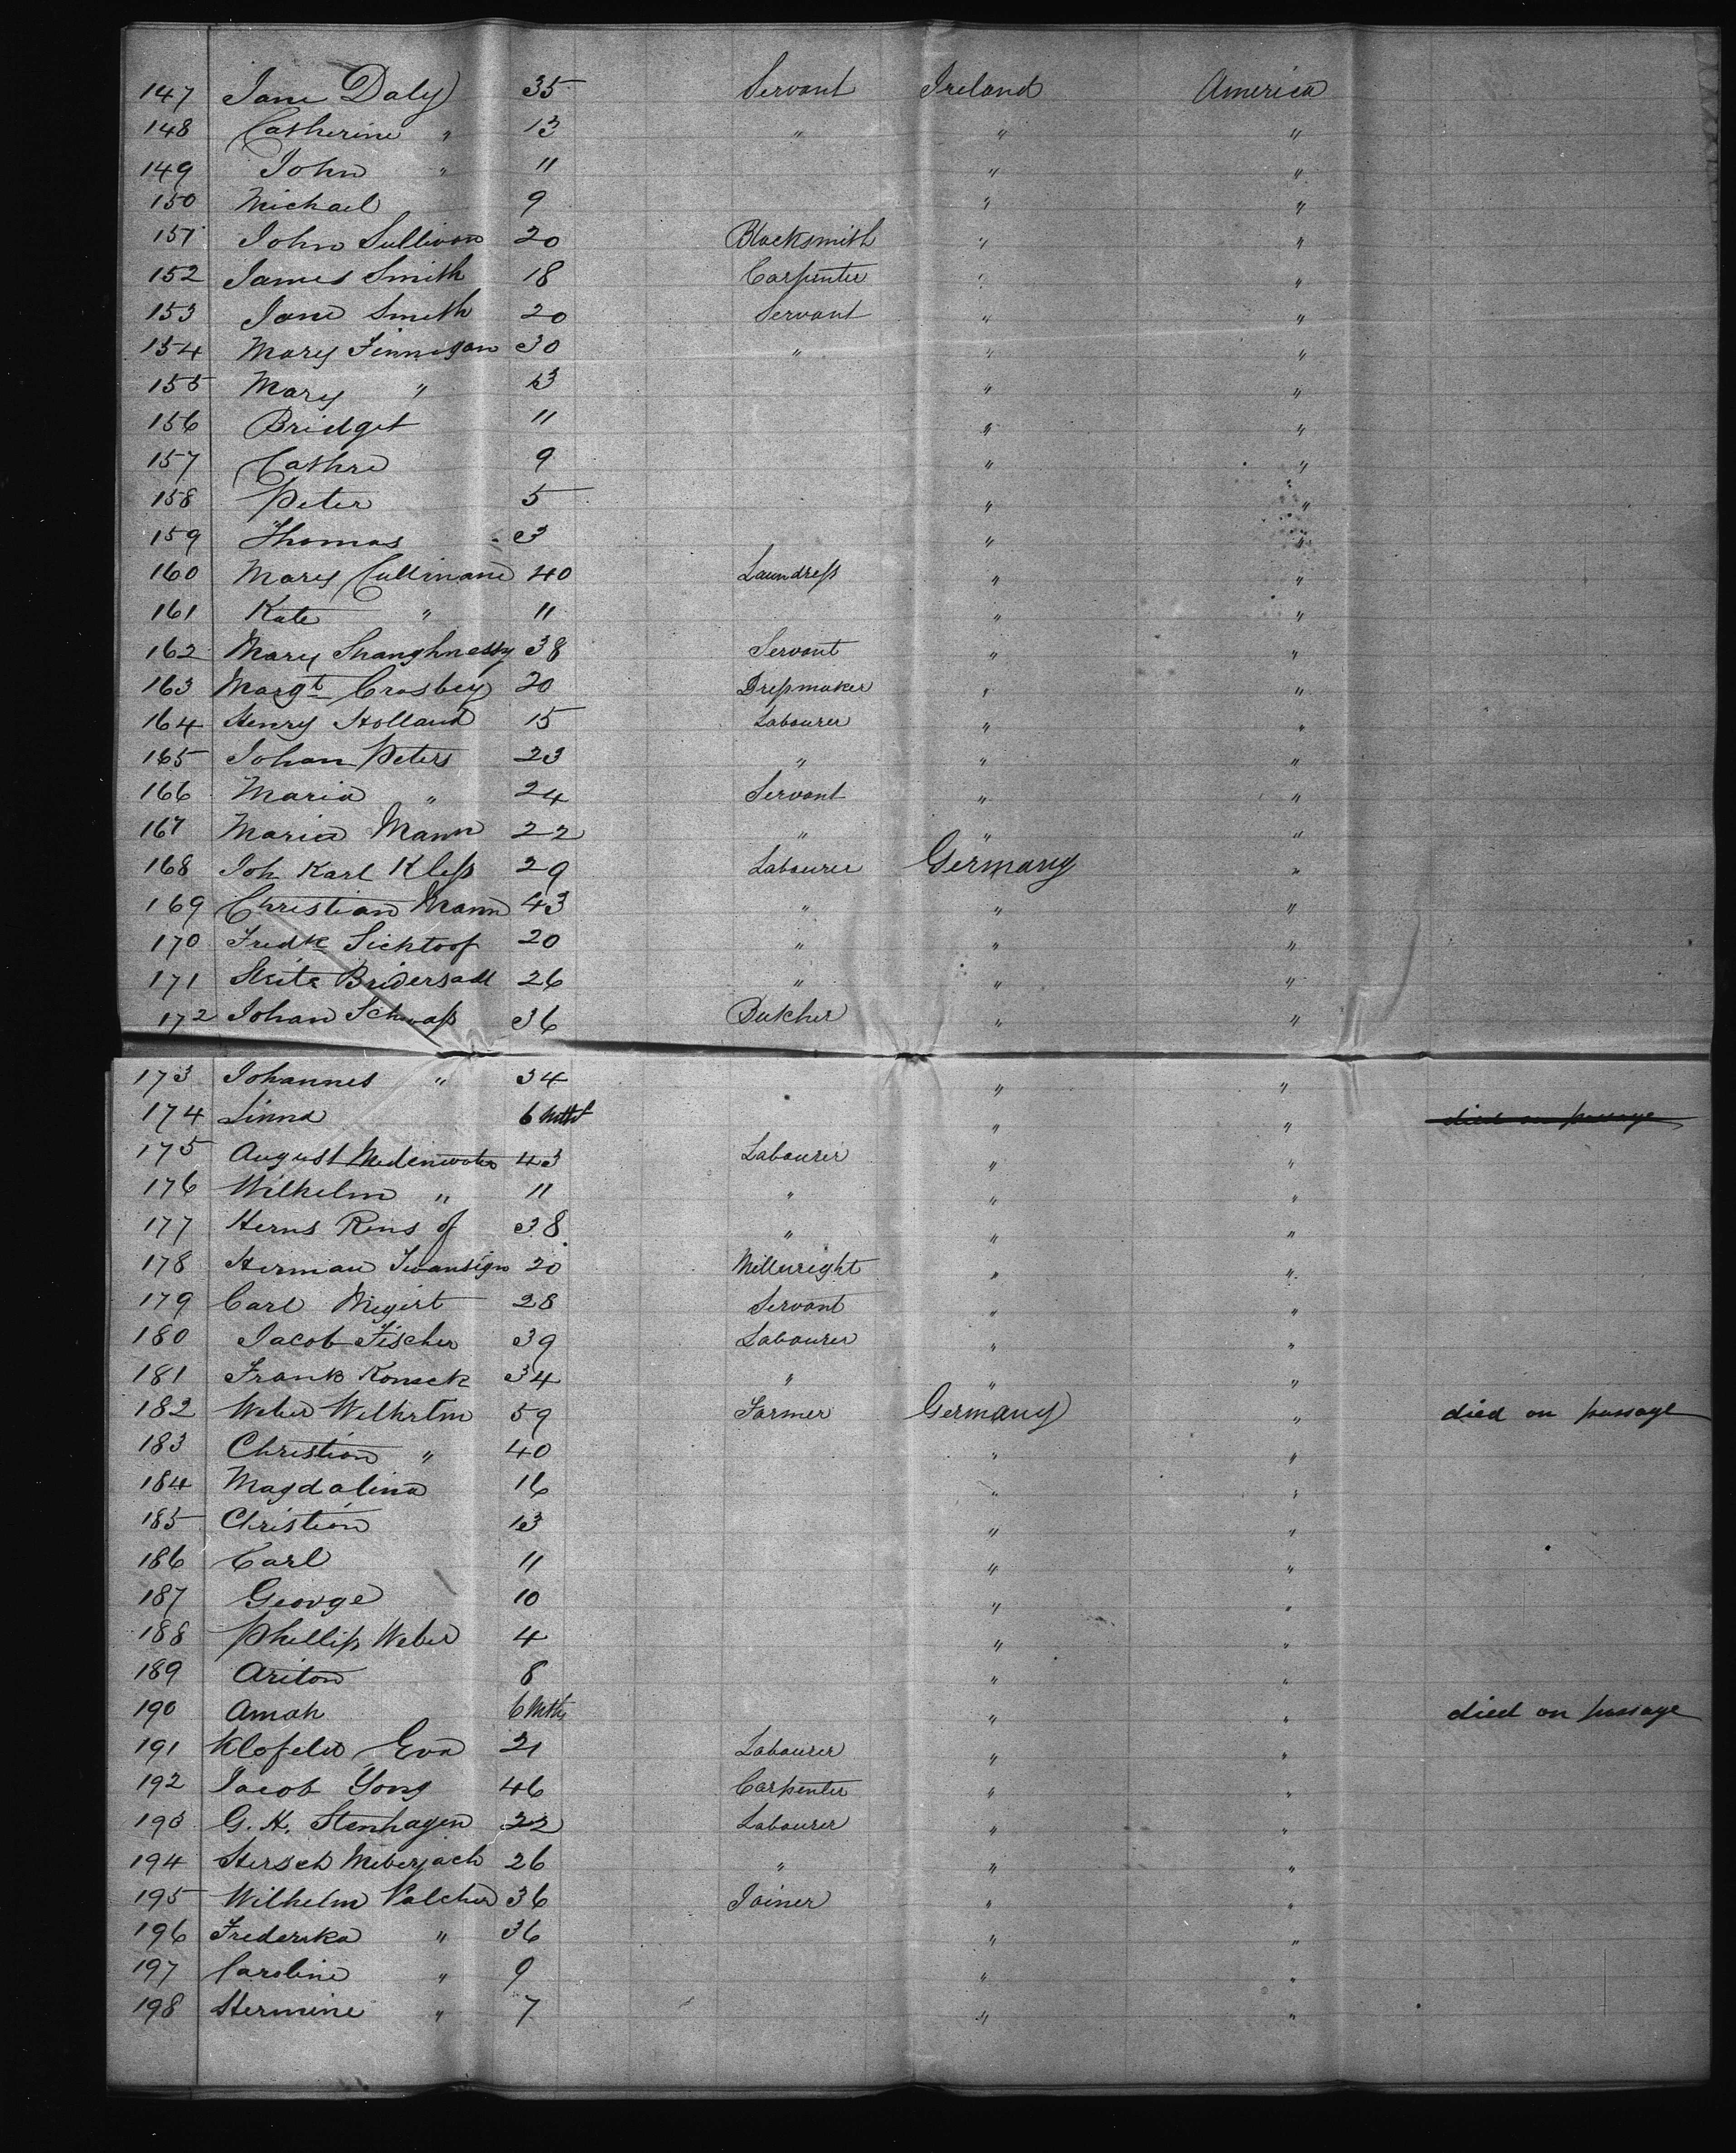 147 Jane Daly 35 Servant Ireland America
148 Catherine " 13 " " "
149 John " 11 " "
150 Michael 9 " "
151 John Sullivan 20 Blacksmith " "
152 James Smith 18 Carpenter " "
153 Jane Smith 20 Servant " "
154 Mary Finnigan 30 " " "
155 Mary " 13 " "
156 Bridget 11 " "
157 Cathre 9 " "
158 Peter 5 " "
159 Thomas 3 " "
160 Mary Cullinane 40 Laundress " "
161 Kate " 11 " "
162 Mary Shaughnessy 38 Servant " "
163 Margt Crosbey 20 Dressmaker " "
164 Henry Holland 15 Labourer " "
165 Johan Peters 23 " " "
166 Maria " 24 Servant " "
167 Maria Mann 22 " " "
168 Joh Karl Kless 29 Labourer Germany "
169 Christian Mann 43 " " "
170 Fredk Sicktoof 20 " " "
171 26 " " "
172 Johan Schwass 36 Butcher " "
173 Johannes " 34 " "
174 Linna 6 Mths " " died on passage
175 August 43 Labourer " "
176 Wilhelm " 11 " " "
177 Herns Rens of 38 " " "
178 Herman 20 Millwright " "
179 Carl Megert 28 Servant " "
180 Jacob Fischer 39 Labourer " "
181 Frank Koneck 34 " " "
182 Weber Wilhelm 59 Farmer Germany " died on passage
183 Christian " 40 " "
184 Magdalina 16 " "
185 Christian 13 " "
186 Carl 11 " "
187 George 10 " "
188 Phillip Weber 4 " "
189 Ariton 8 " "
190 Amah 6 Mths " " died on passage
191 Klofeld Eva 21 Labourer " "
192 Jacob Yong 46 Carpenter " "
193 G. H. Stenhagen 22 Labourer " "
194 Hersch Meberjach 26 " " "
195 Wilhelm Valcher 36 Joiner " "
196 Frederika " 36 " "
197 Caroline " 9 " "
198 Hermine " 7 " "